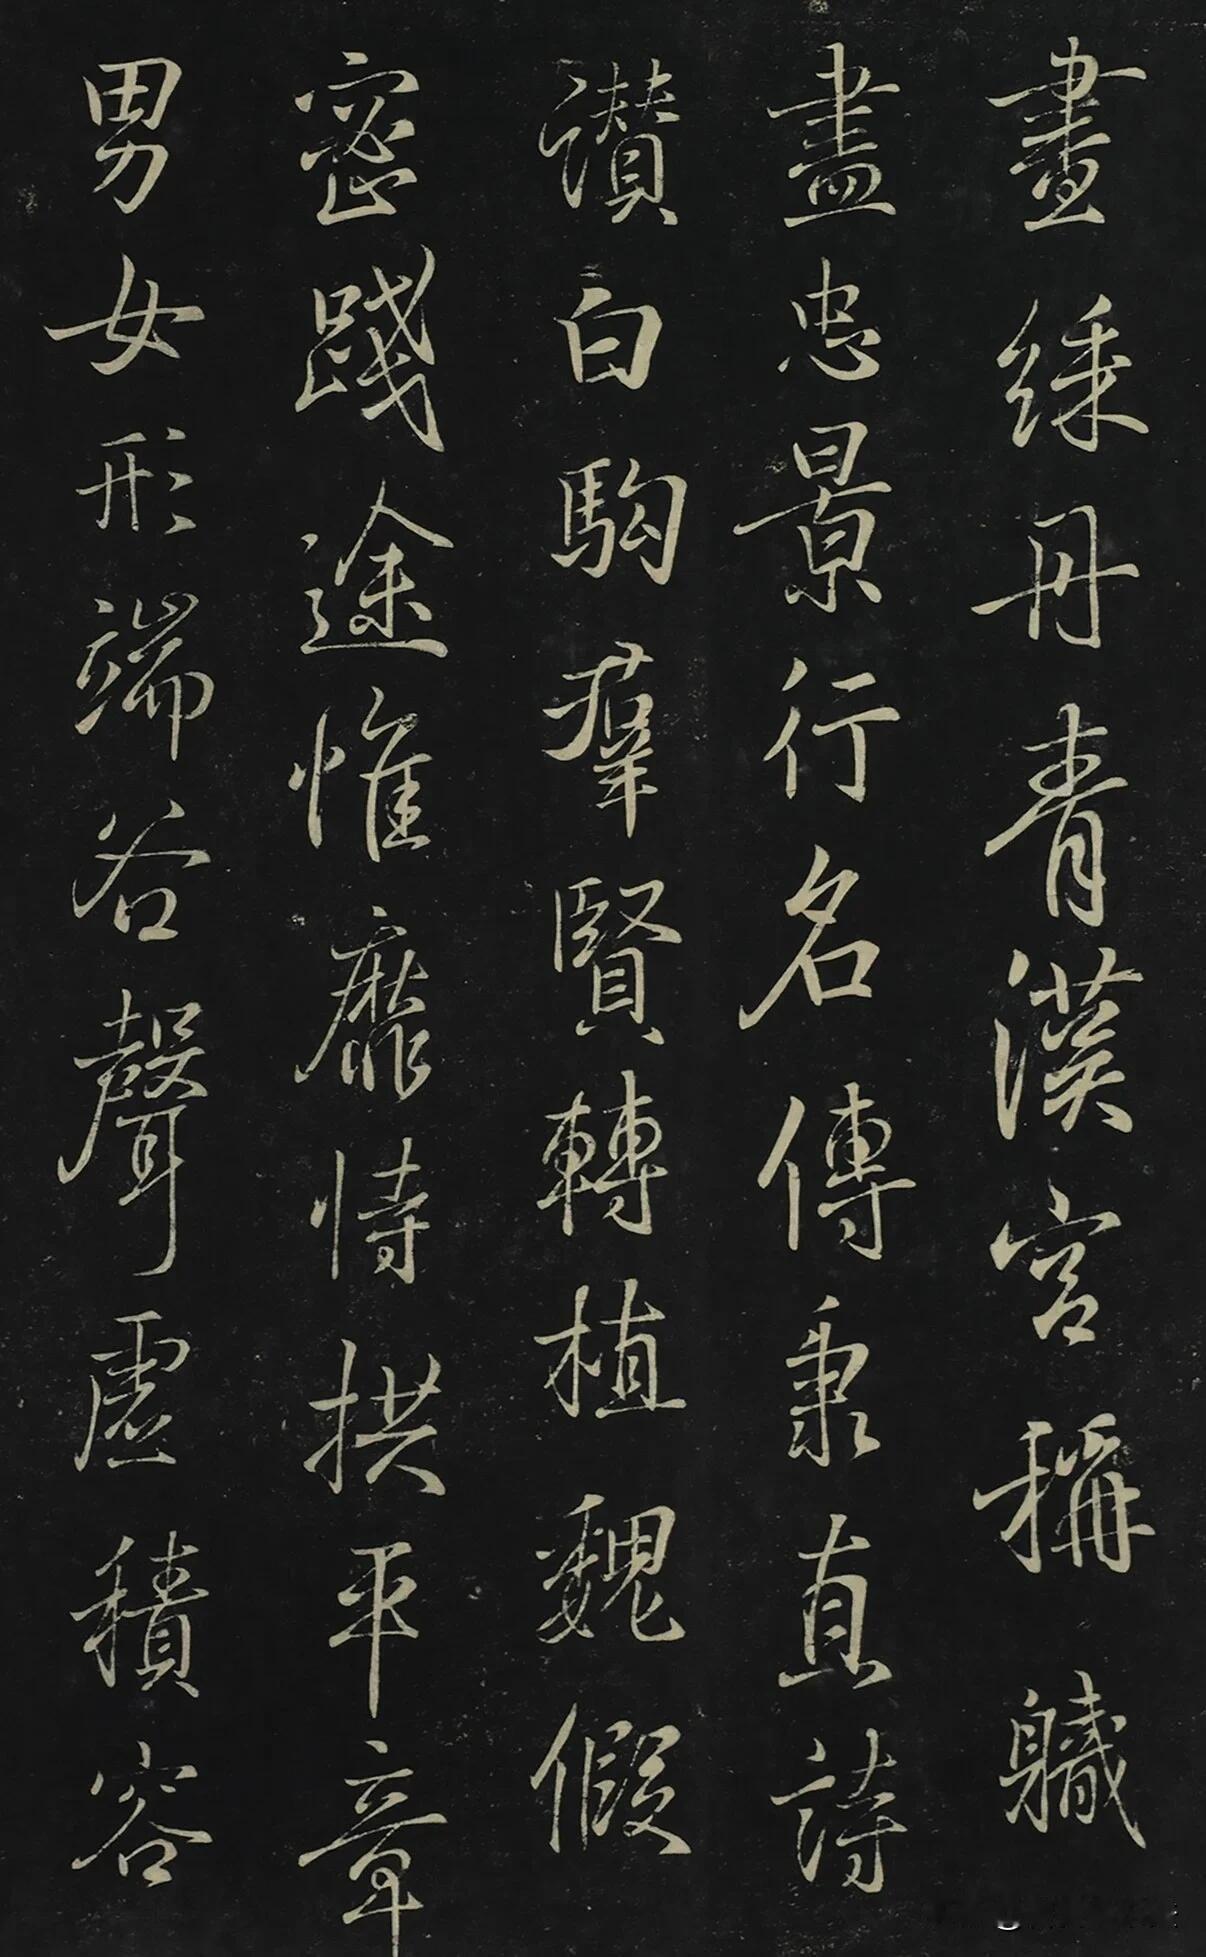 畫綵丹青漢宮稱職
盡忠景行名傳秉直詩
讃白駒羣賢轉植魏假
密踐途惟靡恃拱平章
男女形端谷聲虛積容